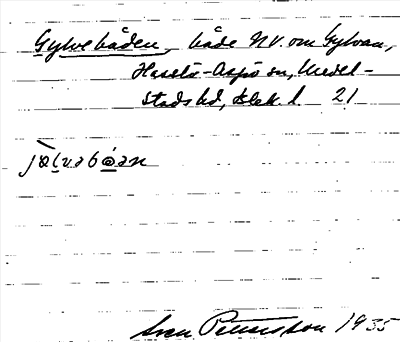 Gylvebåden, både NV. om Gylvan,
Hasslö-Aspö sn, Medel-
stads hd, Blek. l 21
Sven Pettersson 1935